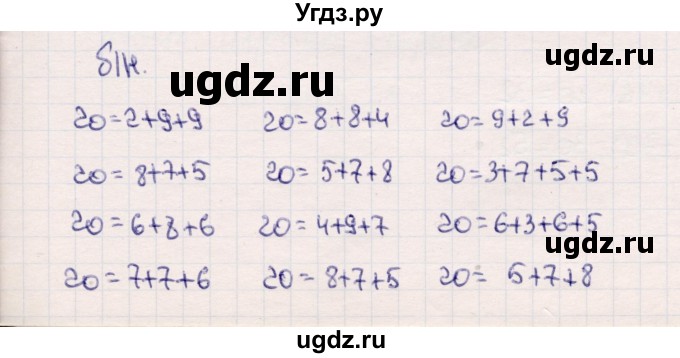 Угдз.ру
б/н.
ugdz.ru
ugdz.ru
20=2+9+9 20=8+8+4 20=9+2+9
20=8+7+5 20=5+7+8 20=3+7+5+5
20=6+8+6 20=4+9+7 20=6+3+6+5
ugdz.ru
20=7+7+6 20=8+7+5 20= 5+7+8
ugdz.ru
ugdz.ru